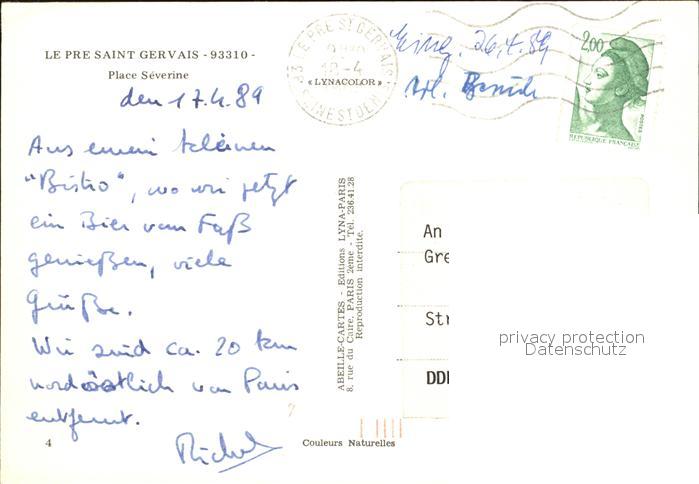 LE PRE SAINT GERVAIS - 93310 -
Place Séverine
den 17.4.89
Aus einem kleinen
"Bistro", wo wir jetzt
ein Bier vom Faß
genießen, viele
Grüße.
Wir sind ca. 20 km
nordöstlich von Paris
entfernt.
4
Couleurs Naturelles
ABEILLE-CARTES - Editions LYNA-PARIS
8, rue du Caire, PARIS 2ème - Tél. 236.41.28
Reproduction interdite.
93 LE PRE ST GERVAIS
18-4
« LYNACOLOR »
26.4.89
2,00
POSTES
REPUBLIQUE FRANÇAISE
An
Gre
Str
DDR
privacy protection
Datenschutz